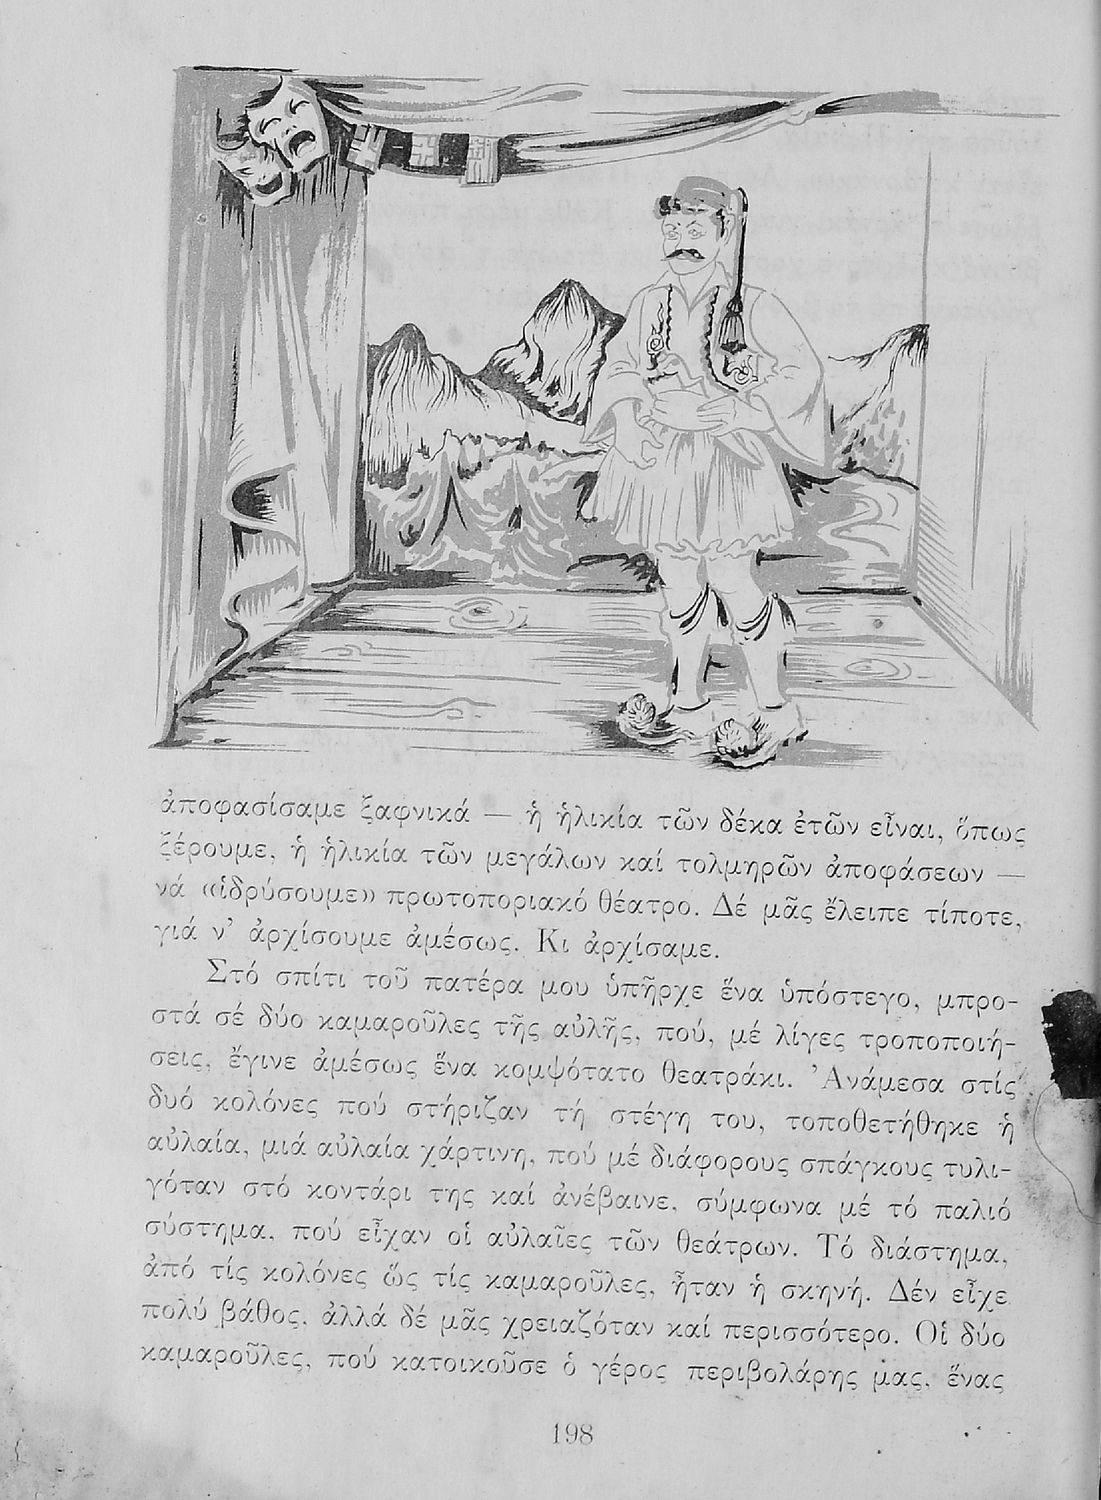 ἀποφασίσαμε ξαφνικά — ἡ ἡλικία τῶν δέκα ἐτῶν εἶναι, ὅπως
ξέρουμε, ἡ ἡλικία τῶν μεγάλων καί τολμηρῶν ἀποφάσεων —
νά «ἱδρύσουμε» πρωτοποριακό θέατρο. Δέ μᾶς ἔλειπε τίποτε,
γιά ν’ ἀρχίσουμε ἀμέσως. Κι ἀρχίσαμε.
Στό σπίτι τοῦ πατέρα μου ὑπῆρχε ἕνα ὑπόστεγο, μπρο-
στά σέ δύο καμαροῦλες τῆς αὐλῆς, πού, μέ λίγες τροποποιή-
σεις, ἔγινε ἀμέσως ἕνα κομψότατο θεατράκι. Ἀνάμεσα στίς
δυό κολόνες πού στήριζαν τή στέγη του, τοποθετήθηκε ἡ
αὐλαία, μιά αὐλαία χάρτινη, πού μέ διάφορους σπάγκους τυλι-
γόταν στό κοντάρι της καί ἀνέβαινε, σύμφωνα μέ τό παλιό
σύστημα, πού εἶχαν οἱ αὐλαῖες τῶν θεάτρων. Τό διάστημα,
ἀπό τίς κολόνες ὥς τίς καμαροῦλες, ἦταν ἡ σκηνή. Δέν εἶχε
πολύ βάθος, ἀλλά δέ μᾶς χρειαζόταν καί περισσότερο. Οἱ δύο
καμαροῦλες, πού κατοικοῦσε ὁ γέρος περιβολάρης μας, ἕνας
198